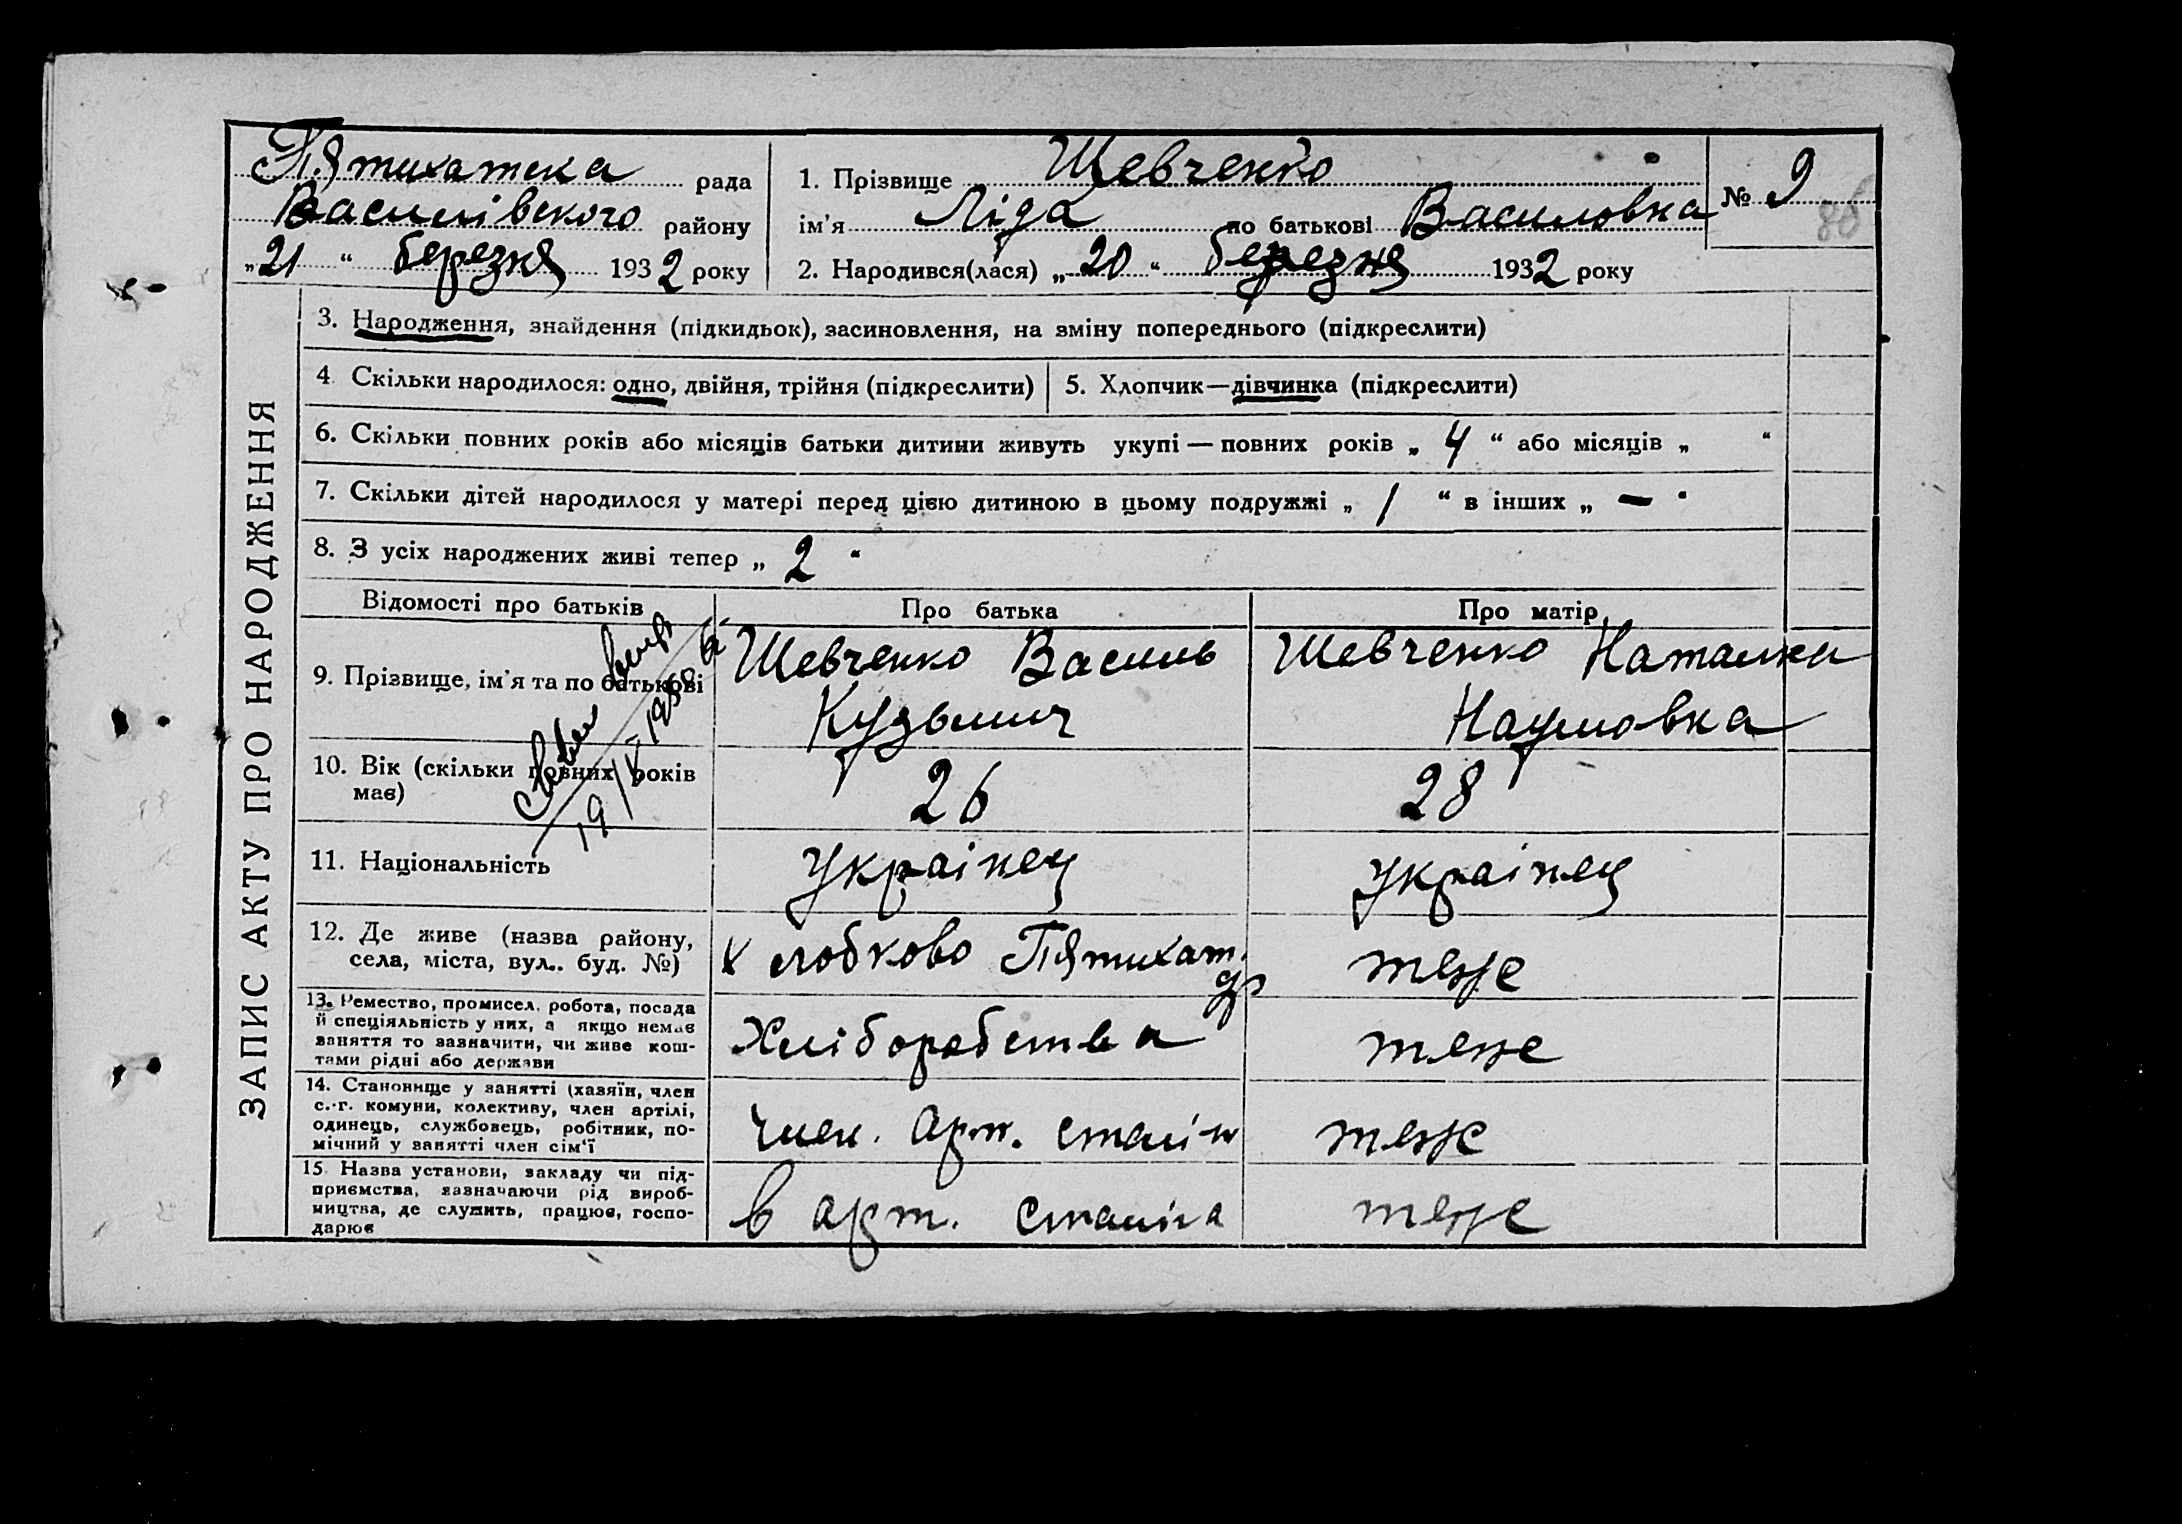 П'ятихатска рада
Василівського району
„21“ березня 1932 року
1. Прізвище Шевченко
ім'я Ліда по батькові Василовна
2. Народився(лася) „20“ березня 1932 року
№ 9
80
ЗАПИС АКТУ ПРО НАРОДЖЕННЯ
3. Народження, знайдення (підкидьок), засиновлення, на зміну попереднього (підкреслити)
4. Скільки народилося: одно, двійня, трійня (підкреслити)
5. Хлопчик—дівчинка (підкреслити)
6. Скільки повних років або місяців батьки дитини живуть укупі — повних років „ 4 “ або місяців „ “
7. Скільки дітей народилося у матері перед цією дитиною в цьому подружжі „ 1 “ в інших „ — “
8. З усіх народжених живі тепер „ 2 “
Відомості про батьків
Про батька
Про матір
9. Прізвище, ім'я та по батькові
Шевченко Василь
Кузьмич
Шевченко Наталка
Наумовка
19/
10. Вік (скільки повних років
має)
26
28
11. Національність
Українец
Українец
12. Де живе (назва району,
села, міста, вул.. буд. №)
х Любково Пятихат.
теж
13. Ремество, промисел, робота, посада
й спеціяльність у них, а якщо немає
заняття то зазначити, чи живе кош-
тами рідні або держави
Хліборобства
теже
14. Становище у занятті (хазяїн, член
с.-г. комуни, колективу, член артілі,
одинець, службовець, робітник, по-
мічний у занятті член сім'ї
член. арт. сталін
теж
15. Назва установи, закладу чи під-
приємства, зазначаючи рід вироб-
ництва, де служить, працює, госпо-
дарює
в арт. Сталіна
теж